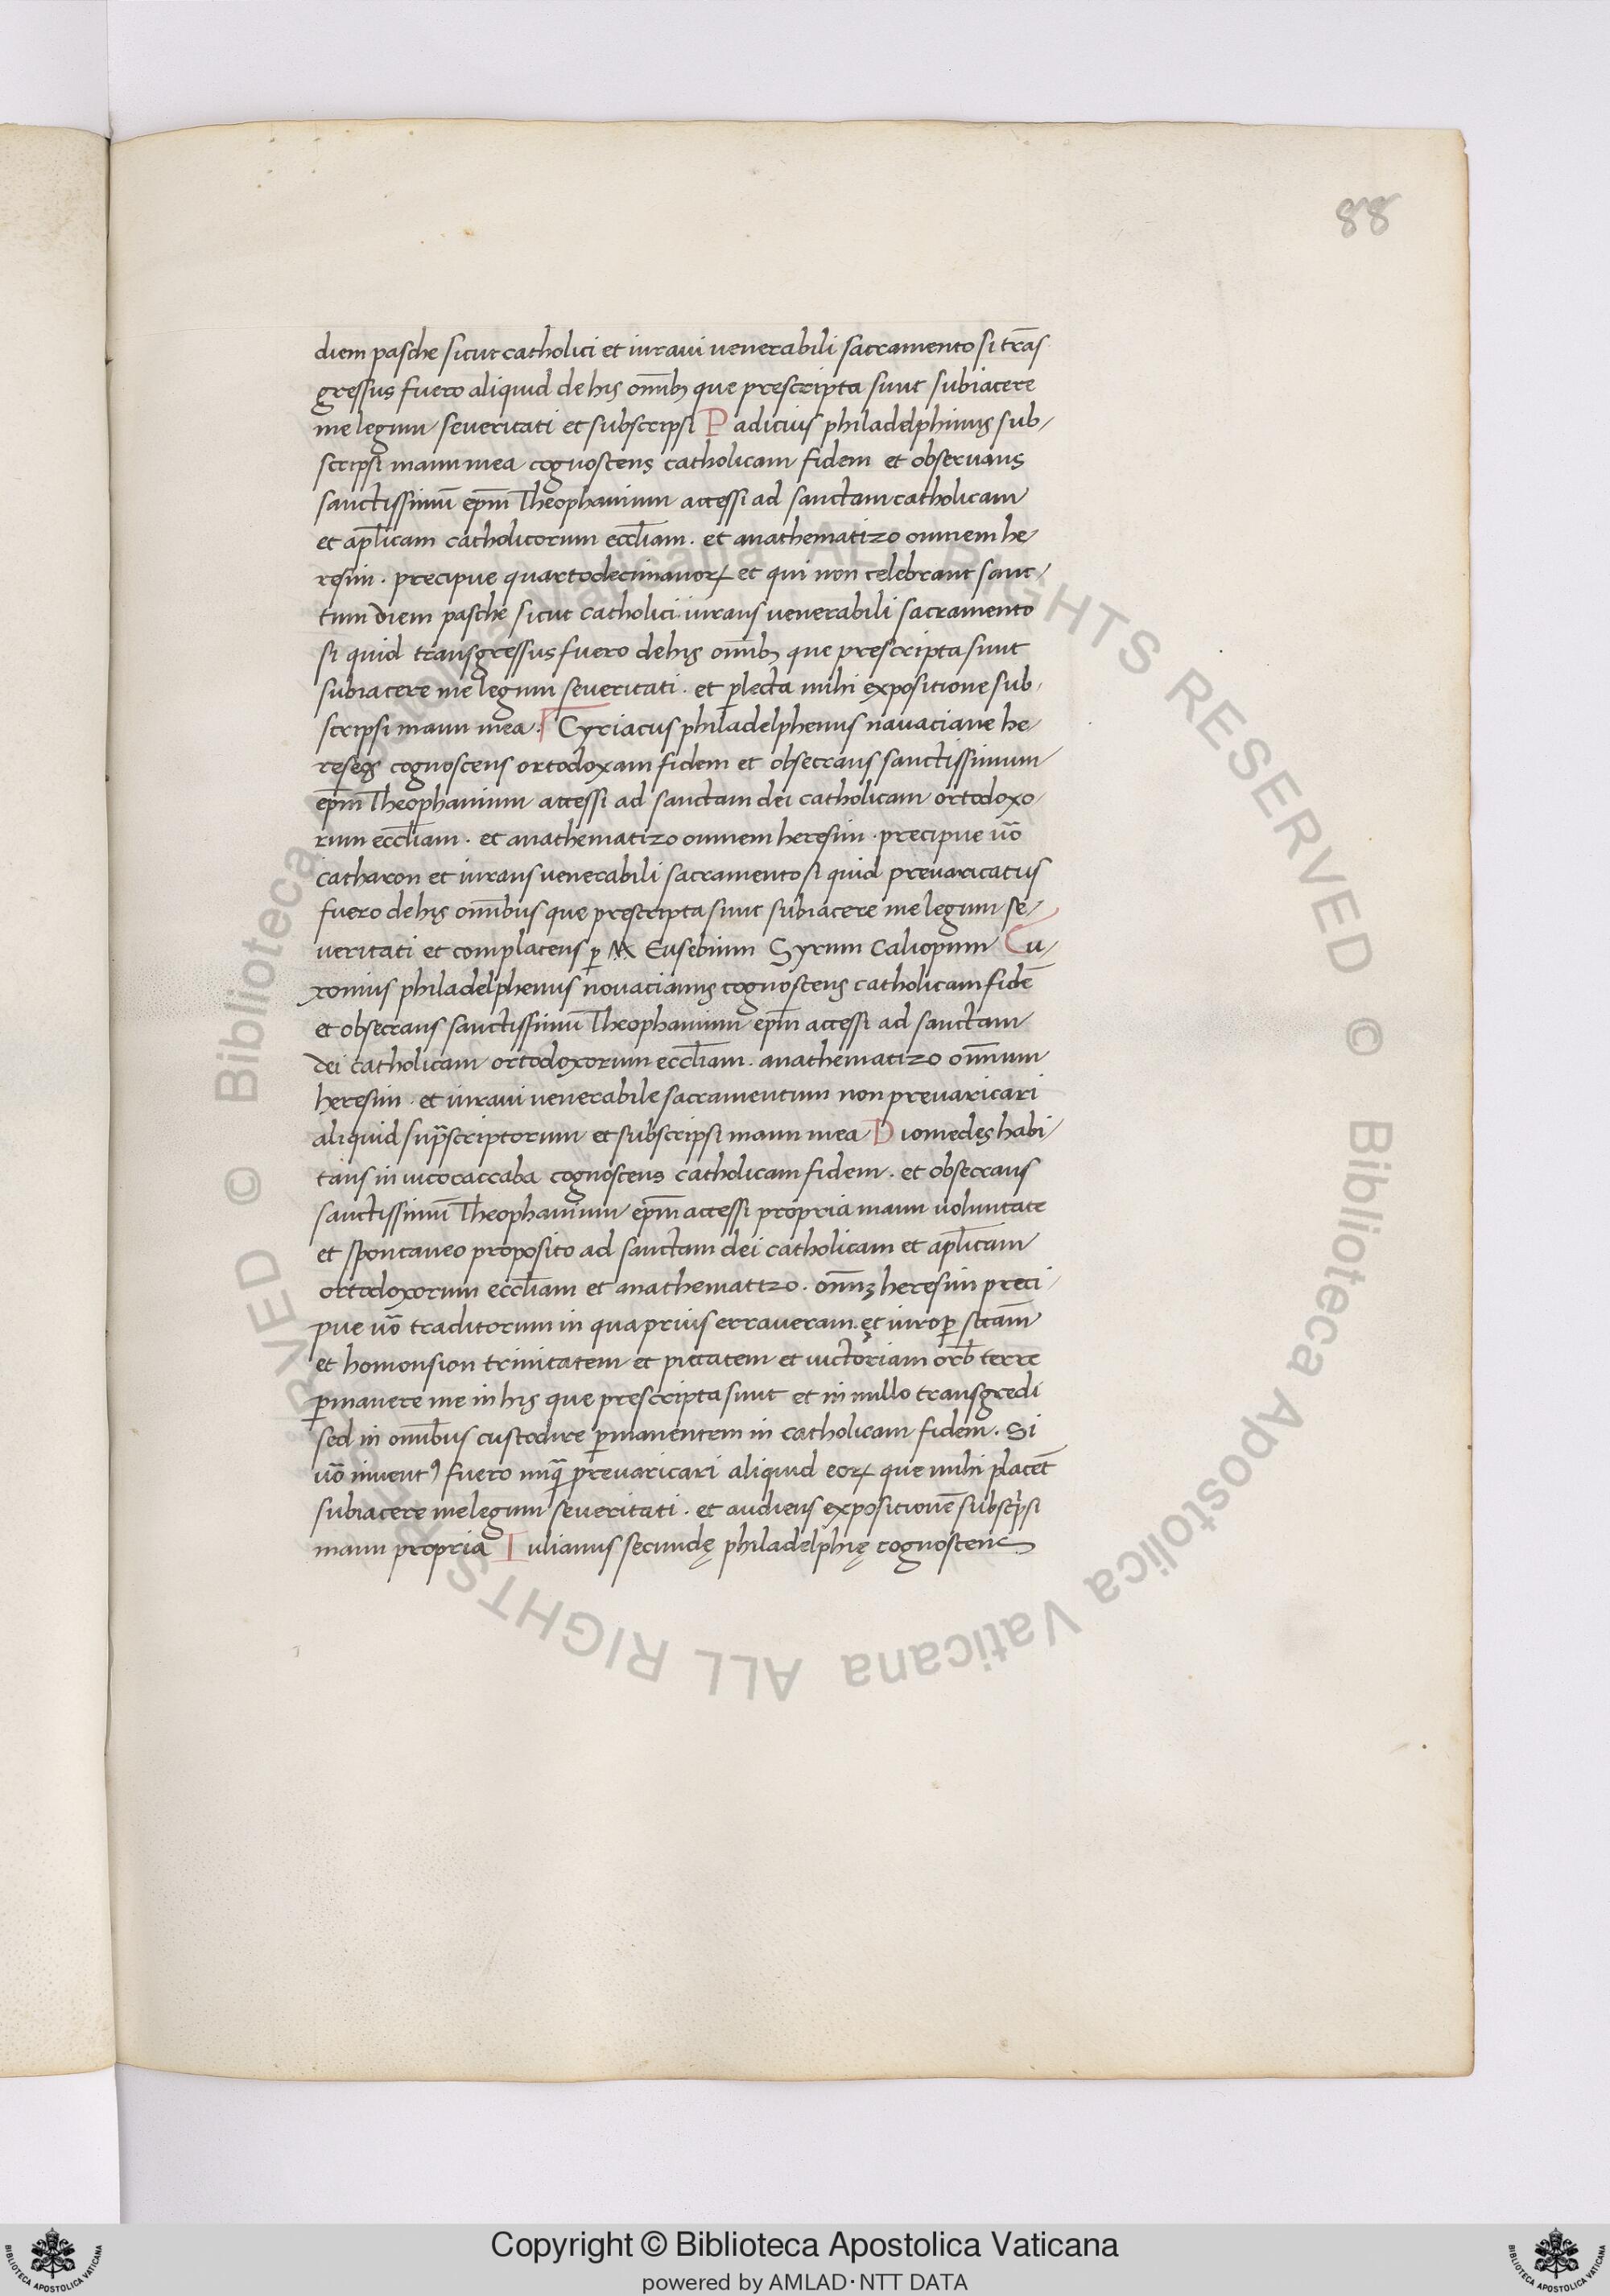 88
diem pasche sicut catholici et iuraui uenerabili sacramento si trās
gressus fuero aliquid de his om̄ibꝫ que prescripta sunt subiacere
me legum seueritati et subscripsi Padicius philadelphinus sub/
scripsi manu mea cognoscens catholicam fidem et obseruans
sanctissimū ep̄m Theophanium accessi ad sanctam catholicam
et ap̄licam catholicorum eccl̄iam. et anathematizo omnem he/
resim. precipue quartodecimanorꝝ et qui non celebrant sanc/
tum diem pasche sicut catholici. iurans uenerabili sacramento
si quid transgressus fuero de his om̄ibꝫ que prescripta sunt
subiacere me legum seueritati. et ꝑlecta mihi expositione sub/
scripsi manu mea. Cyriacus philadelphenus nauaciane he/
reseos cognoscens ortodoxam fidem et obsecrans sanctissimum
ep̄m Theophanium accessi ad sanctam dei catholicam ortodoxo/
rum eccl̄iam. et anathematizo omnem heresim. precipue uō
catharon et iurans uenerabili sacramento si quid preuaricatus
fuero de his om̄ibus que prescripta sunt subiacere me legum se/
ueritati et complacens ꝑ Eusebium Syrum Caliopum Cu/
xonius philadelphenus nouacianus cognoscens catholicam fidē
et obsecrans sanctissimū Theophanium ep̄m accessi ad sanctam
dei catholicam ortodoxorum eccl̄iam. anathematizo om̄mum
heresim. et iuraui uenerabile sacramentum non preuaricari
aliquid sup̄scriptorum et subscripsi manu mea Diomedes habi/
tans in uico caccaba cognoscens catholicam fidem. et obsecrans
sanctissimū Theophanium ep̄m accessi propria manu uoluntate
et spontaneo proposito ad sanctam dei catholicam et ap̄licam
ortodoxorum eccl̄iam et anathematizo. om̄nꝫ heresim preci/
pue uō traditorum in qua prius erraueram. et iuro ꝑ sc̄am
et homousion trinitatem et pietatem et uictoriam orb̄ terre
ꝑmanere me in his que prescripta sunt et in nullo transgredi
sed in om̄ibus custodire ꝑmanentem in catholicam fidem. Si
uō inuentꝰ fuero unq̄ preuaricari aliquid eorꝝ que mihi placēt
subiacere me legum seueritati. et audiens expositionē subscp̄si
manu propria Iulianus secundę philadelphię cognoscens
Copyright © Biblioteca Apostolica Vaticana
powered by AMLAD·NTT DATA